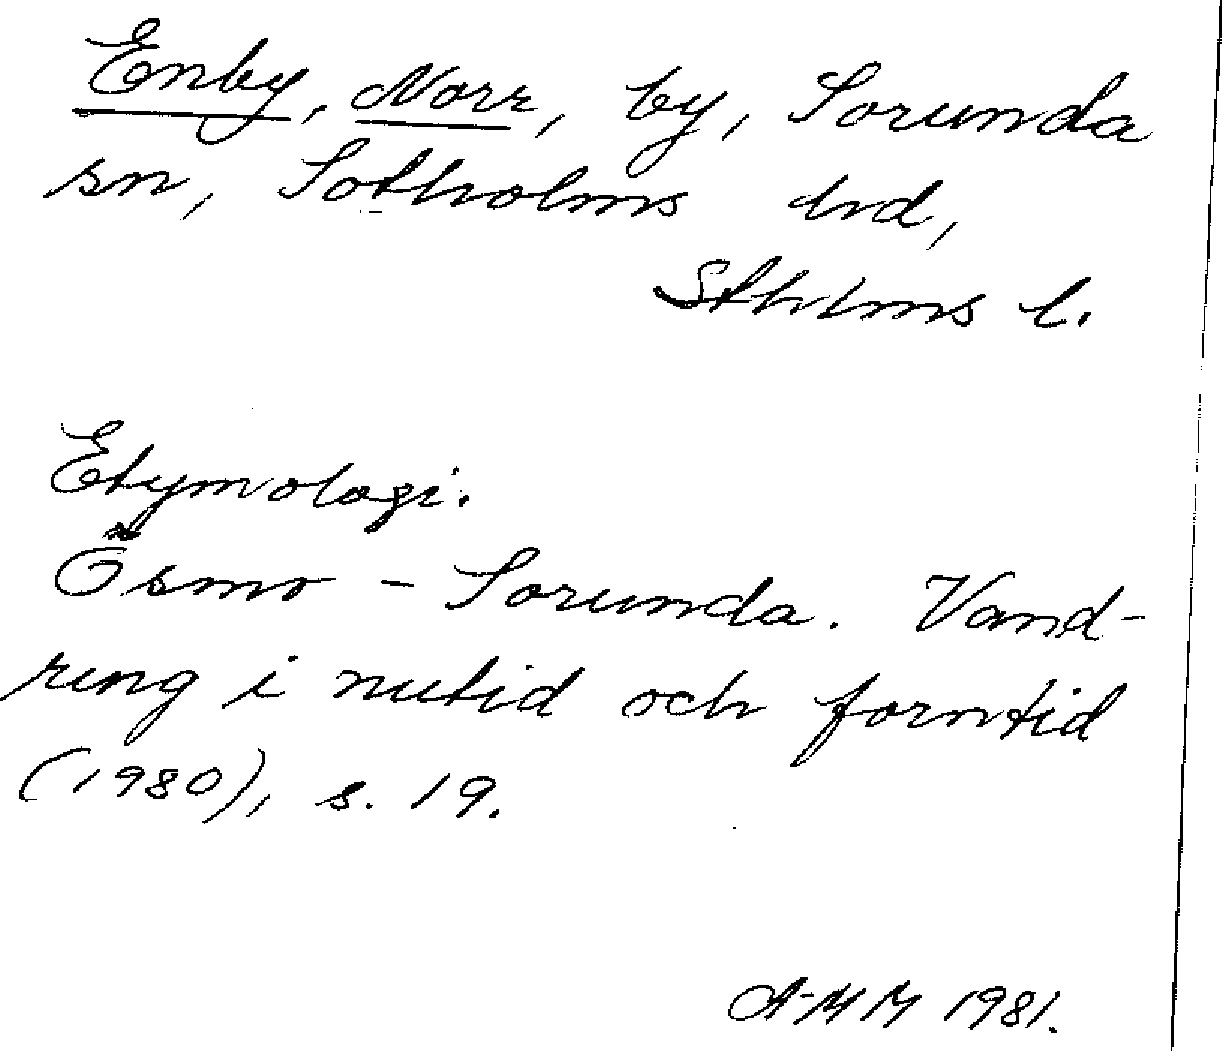 Enby, Norr, by, Sorunda
sn, Sotholms hd,
Sthlms l.
Etymologi.
Ösmo - Sorunda. Vand-
ring i nutid och forntid
(1980), s. 19.
A-MM 1981.